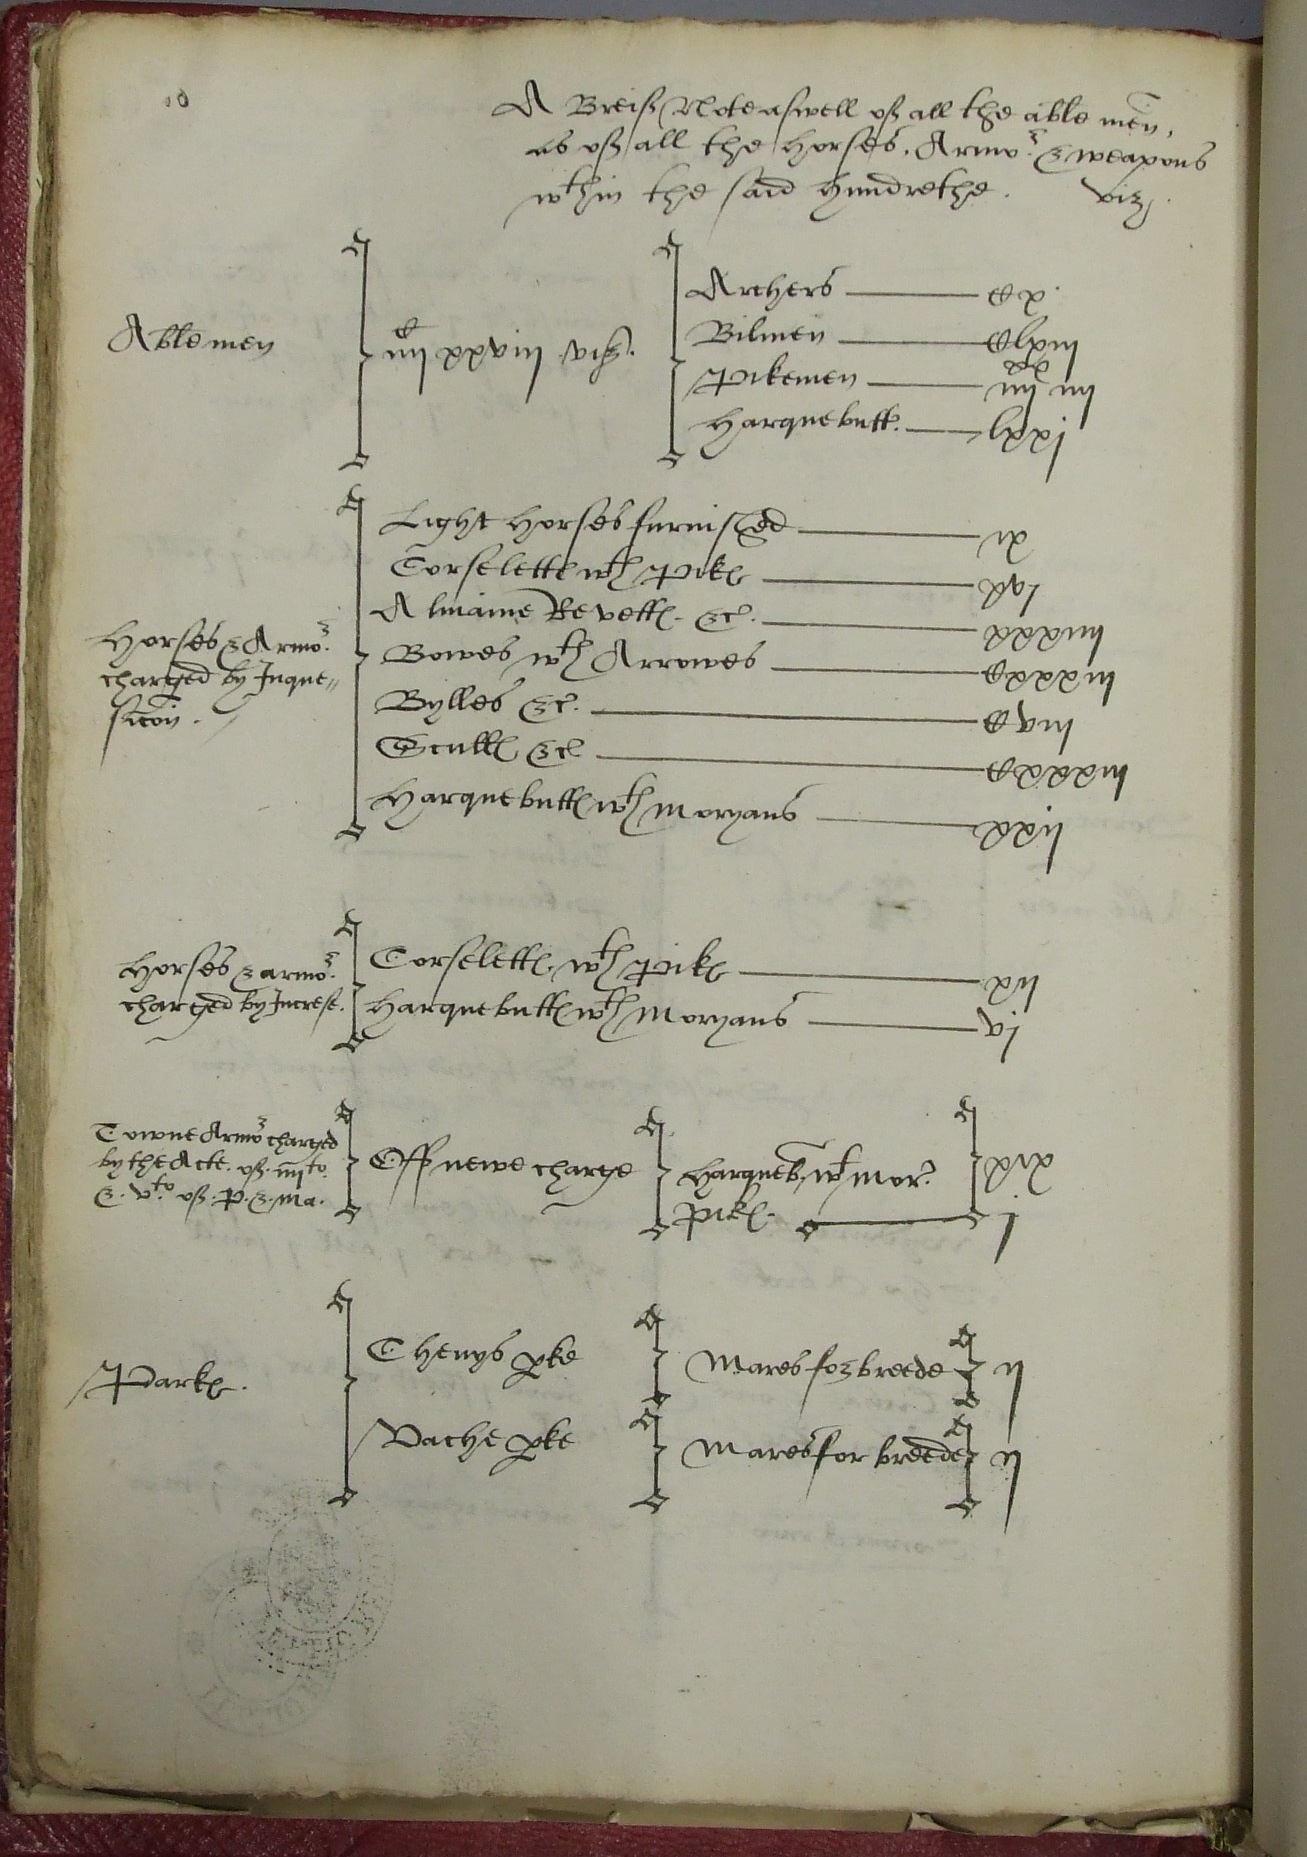 A Breif Note aswell of all the able men,
as of all the horses, Armor & weapons
wthin the said hundrethe. viz.
Able men
iiijC xxviij viz.
Archers Cx
Bilmen Clxiij
Pikemen iiijxx iiij
Harquebutt. lxxj
Horses & Armor
charged by Inque=
sicon.
Light horses furnished ix
Corselette wth Pikes
Almaine Revett. &c. xxxiij
Bowes wth Arrowes Cxxxiij
Bylles &c. Cviij
Scull &c. Cxxxiij
Harquebutt wth Moryans xxxij
Horses & armor
charged by Increse.
Corselett wth Pik xij
Harquebutt wth Moryans vj
Towne Armor charged
by the Acte. of. iiijto.
& vto of. P. & Ma.
Off newe charge
Harqueb. wt mor. xix
Pik. j
Park.
Chenys pke
Mares for breede ij
Vache pke
Mares for breede ij